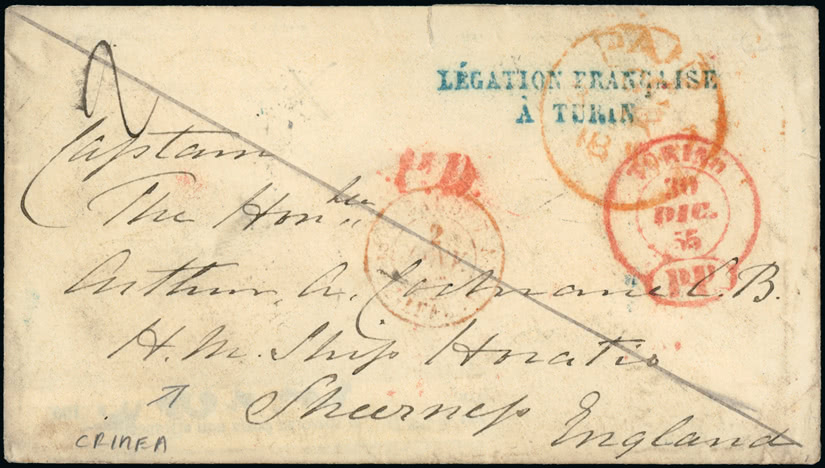 2
LÉGATION FRANÇAISE
À TURIN
PAID
TORINO
30
DIC.
55
PP
P.D.
2
Captain
The Honble
Arthur A. Cochrane C.B.
H.M. Ship Horatio
Sheerness
England
CRIMEA